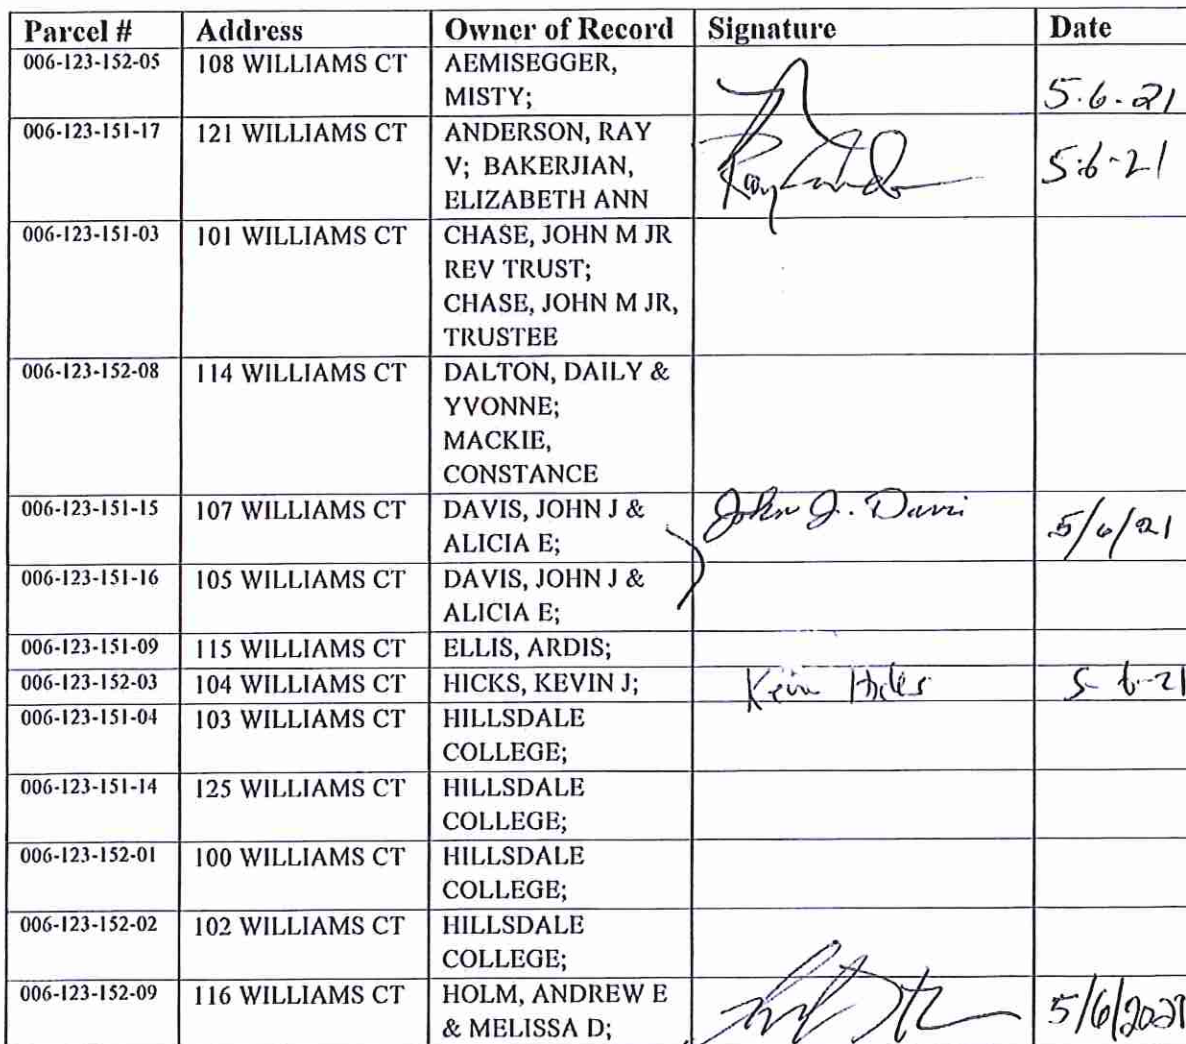 Parcel # Address Owner of Record Signature Date
006-123-152-05 108 WILLIAMS CT AEMISEGGER,
MISTY; 5.6.21
006-123-151-17 121 WILLIAMS CT ANDERSON, RAY
V; BAKERJIAN, 5-6-21
ELIZABETH ANN
006-123-151-03 101 WILLIAMS CT CHASE, JOHN M JR
REV TRUST;
CHASE, JOHN M JR,
TRUSTEE
006-123-152-08 114 WILLIAMS CT DALTON, DAILY &
YVONNE;
MACKIE,
CONSTANCE
006-123-151-15 107 WILLIAMS CT DAVIS, JOHN J & John J. Davis
ALICIA E; 5/6/21
006-123-151-16 105 WILLIAMS CT DAVIS, JOHN J &
ALICIA E;
006-123-151-09 115 WILLIAMS CT ELLIS, ARDIS;
006-123-152-03 104 WILLIAMS CT HICKS, KEVIN J; Kevin Hicks 5-6-21
006-123-151-04 103 WILLIAMS CT HILLSDALE
COLLEGE;
006-123-151-14 125 WILLIAMS CT HILLSDALE
COLLEGE;
006-123-152-01 100 WILLIAMS CT HILLSDALE
COLLEGE;
006-123-152-02 102 WILLIAMS CT HILLSDALE
COLLEGE;
006-123-152-09 116 WILLIAMS CT HOLM, ANDREW E 5/6/2021
& MELISSA D;